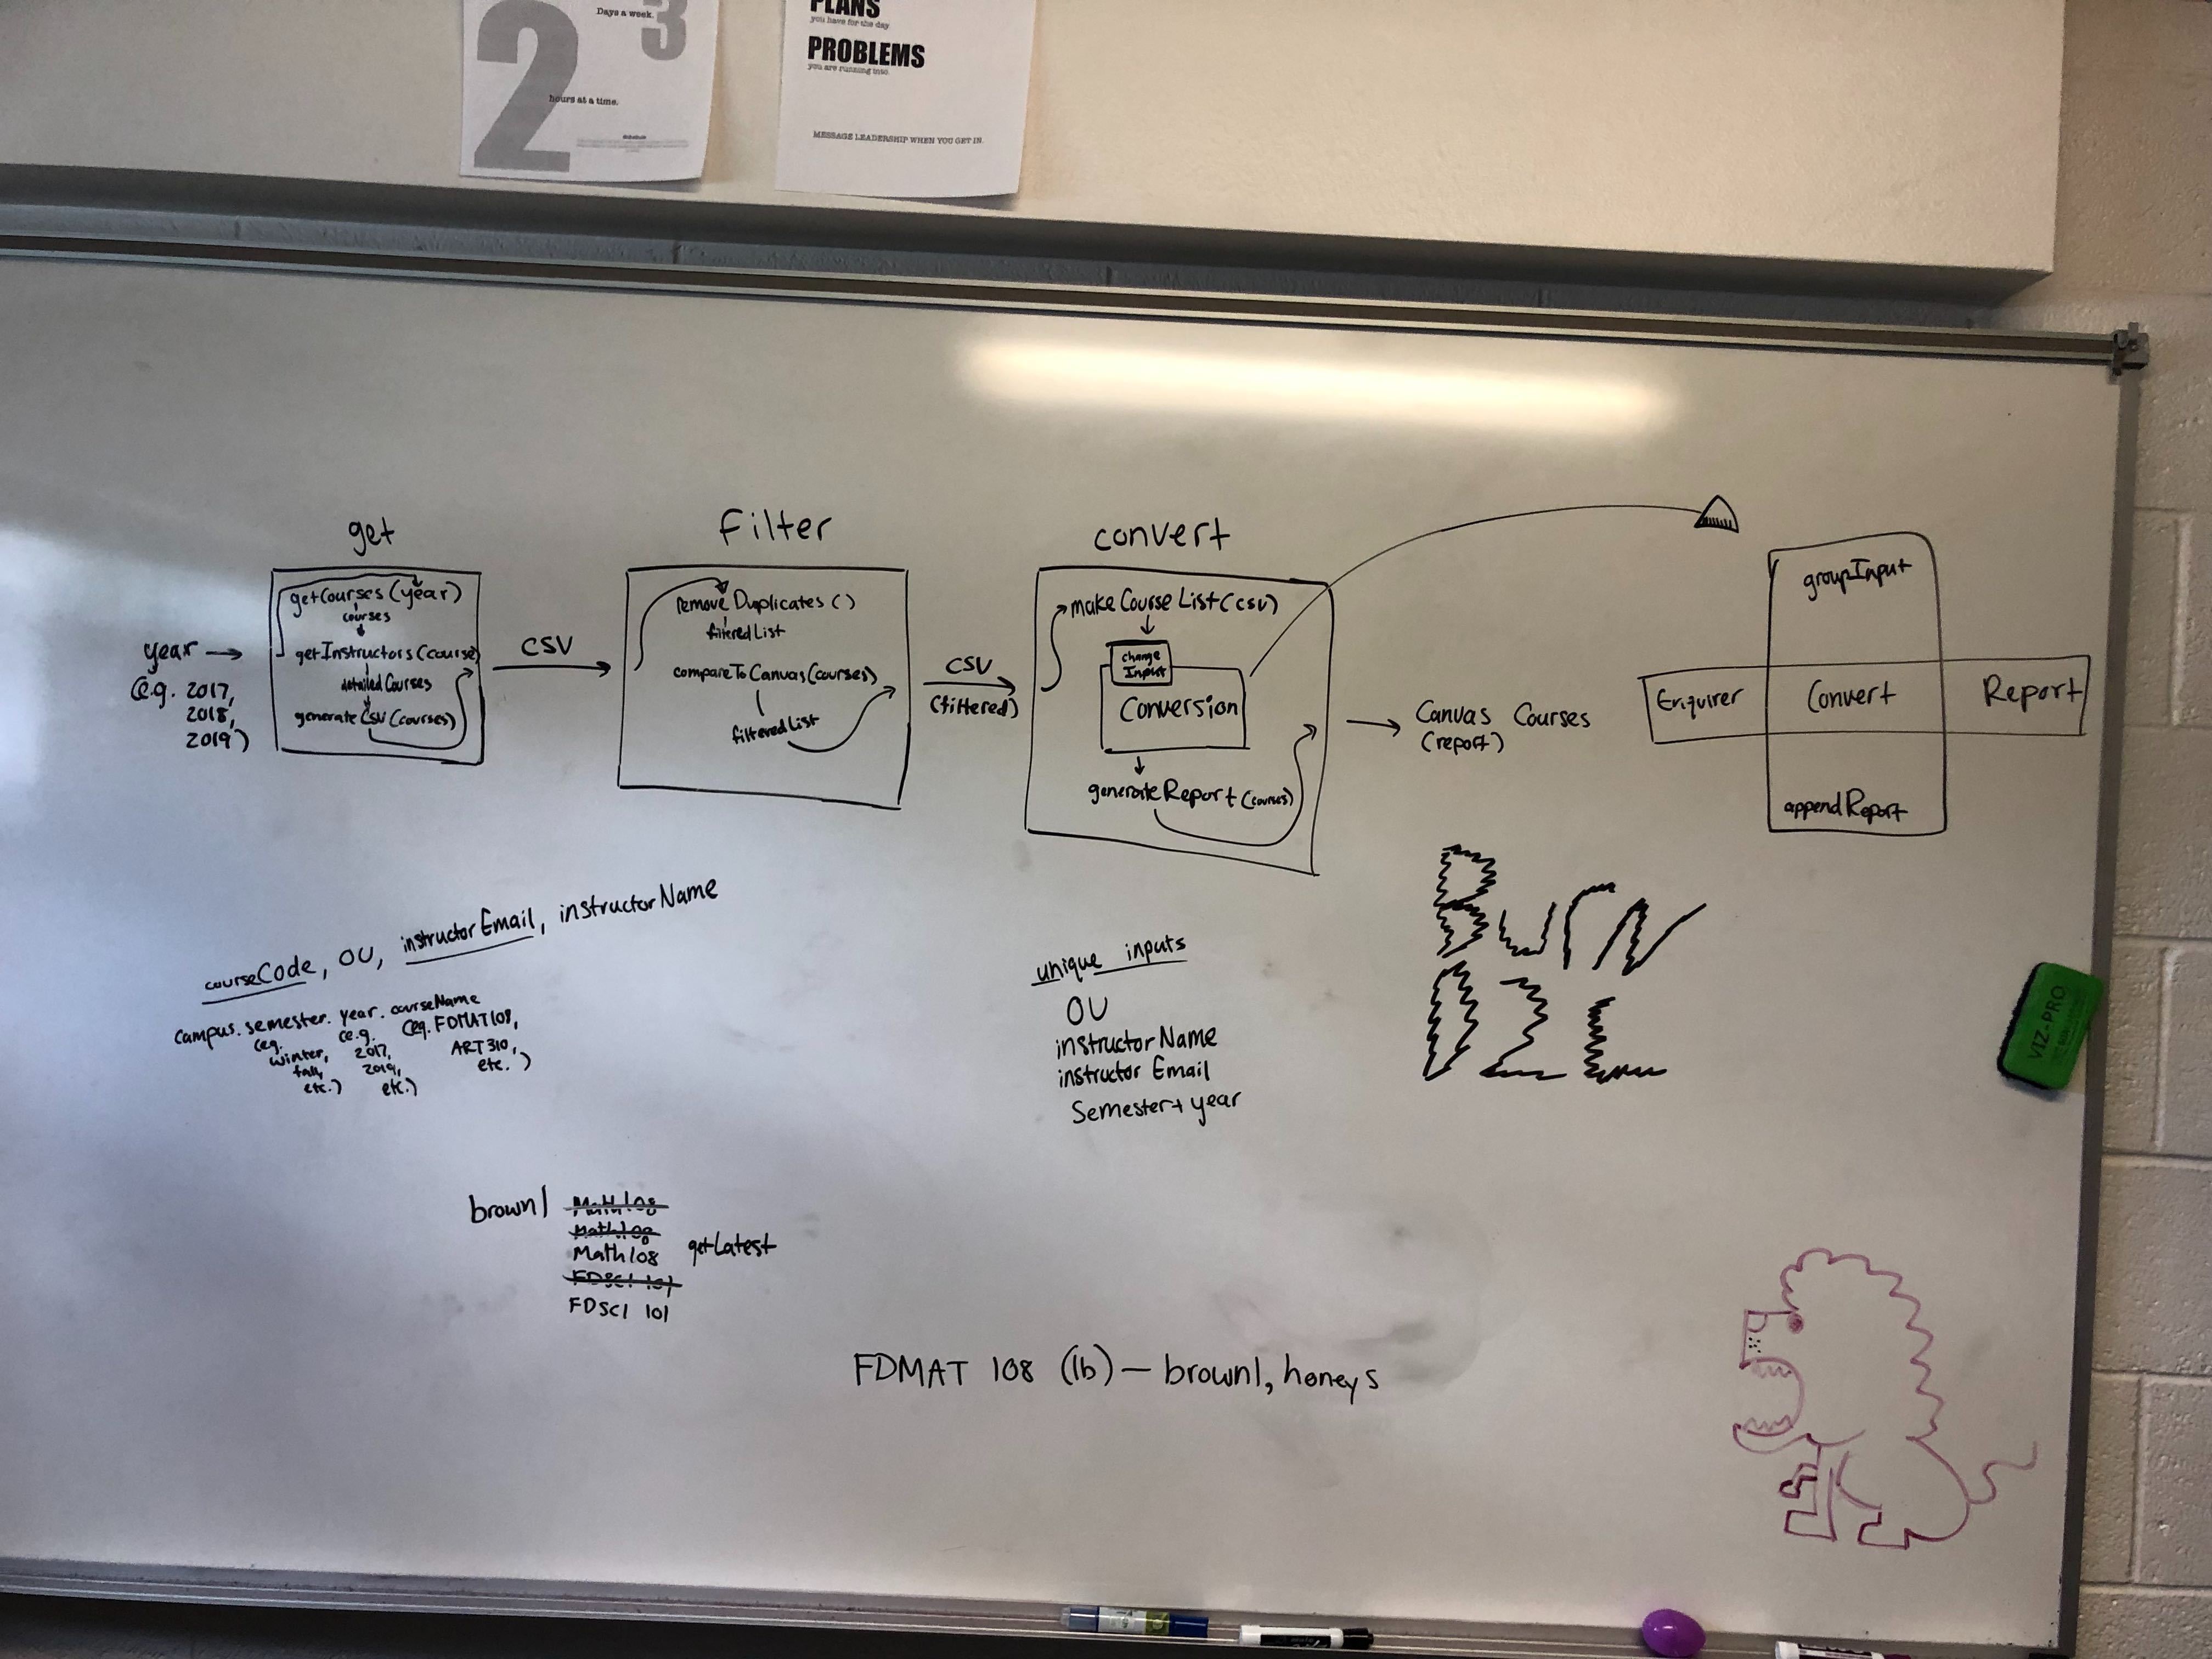 2
Days a week.
3
hours at a time.
PLANS
you have for the day
PROBLEMS
you are running into.
MESSAGE LEADERSHIP WHEN YOU GET IN.
get
getCourses (year)
courses
getInstructors (course)
detailed Courses
generate CSV (courses)
year →
(e.g. 2017,
2018,
2019)
CSV
Filter
remove Duplicates ( )
filteredList
compareToCanvas (courses)
filteredList
CSV
(filtered)
convert
make Course List (csv)
change
Input
Conversion
generate Report (courses)
Canvas Courses
(report)
groupInput
Enquirer
Convert
Report
appendReport
courseCode, OU, instructorEmail, instructorName
campus. semester. year. courseName
(e.g.
winter,
fall,
etc.)
(e.g.
2017,
2019,
etc.)
(eg. FDMAT108,
ART 310,
etc.)
unique inputs
OU
instructorName
instructor Email
Semester + year
Burn
D2L
VIZ-PRO
brown1
Math108
Math108
Math108
getLatest
FDSCI 101
FDSCI 101
FDMAT 108 (1b) — brown1, honeys